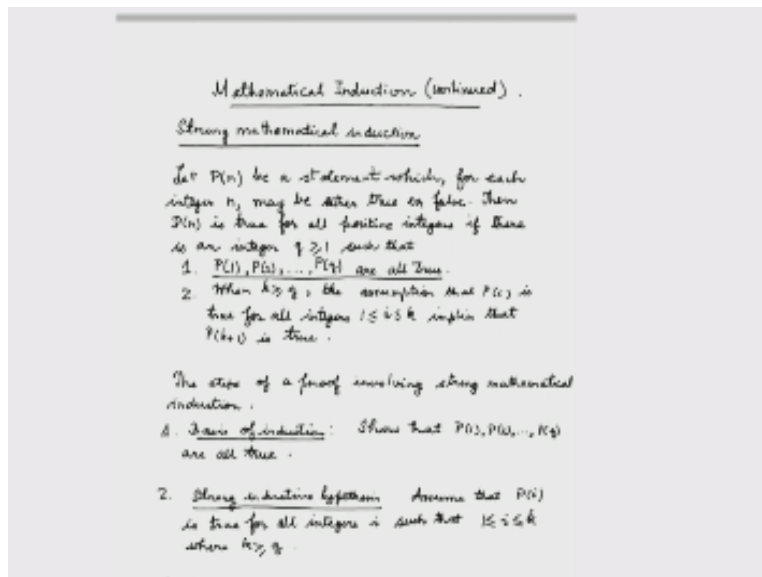 Mathematical Induction (continued).
Strong mathematical induction
Let P(n) be a statement which, for each
integer n, may be either true or false. Then
P(n) is true for all positive integers if there
is an integer q ≥ 1 such that
1. P(1), P(2), ..., P(q) are all True.
2. When k ≥ q, the assumption that P(i) is
true for all integers 1 ≤ i ≤ k implies that
P(k+1) is true.
The steps of a proof involving strong mathematical
induction.
1. Basis of induction: Show that P(1), P(2), ..., P(q)
are all true.
2. Strong inductive hypothesis Assume that P(i)
is true for all integers i such that 1 ≤ i ≤ k
where k ≥ q.